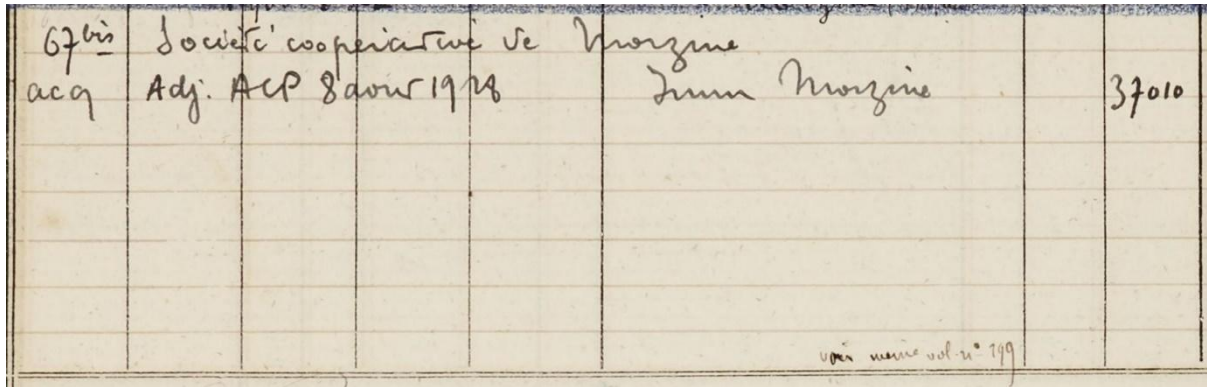 67 bis Société coopérative de Morzine
acq Adj. ACP 8 aout 1928 Imm Morzine 37010
voir meme vol. n° 199